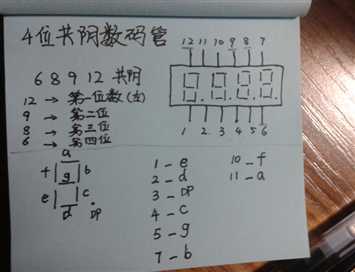 4位共阴数码管
6 8 9 12 共阴
12 → 第一位数(左)
9 → 第二位
8 → 第三位
6 → 第四位
12 11 10 9 8 7
1 2 3 4 5 6
a
f g b
e c
d DP
1 - e
2 - d
3 - DP
4 - c
5 - g
7 - b
10 - f
11 - a